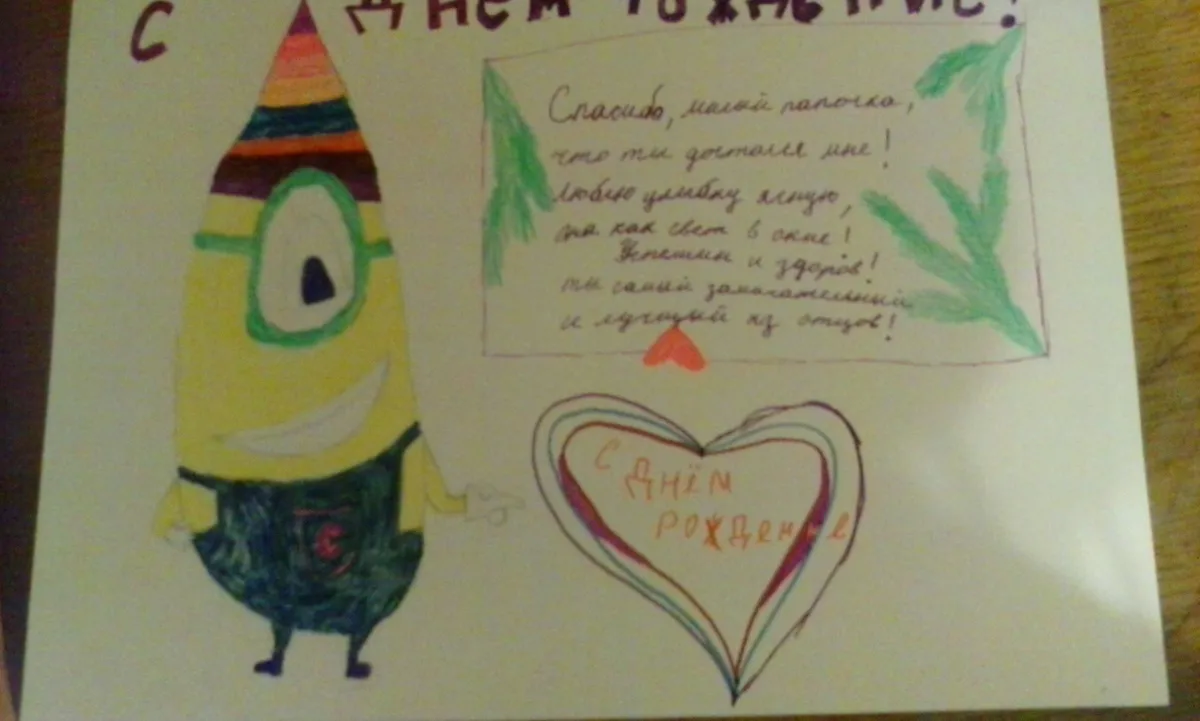 С ДНЁМ РОЖДЕНИЕ!
Спасибо, милый папочка,
что ты достался мне!
Люблю улыбку ясную,
она как свет в окне!
Успешин и здоров!
ты самый замечательный
и лучший из отцов!
С
ДНЁМ
РОЖДЕНИЕ